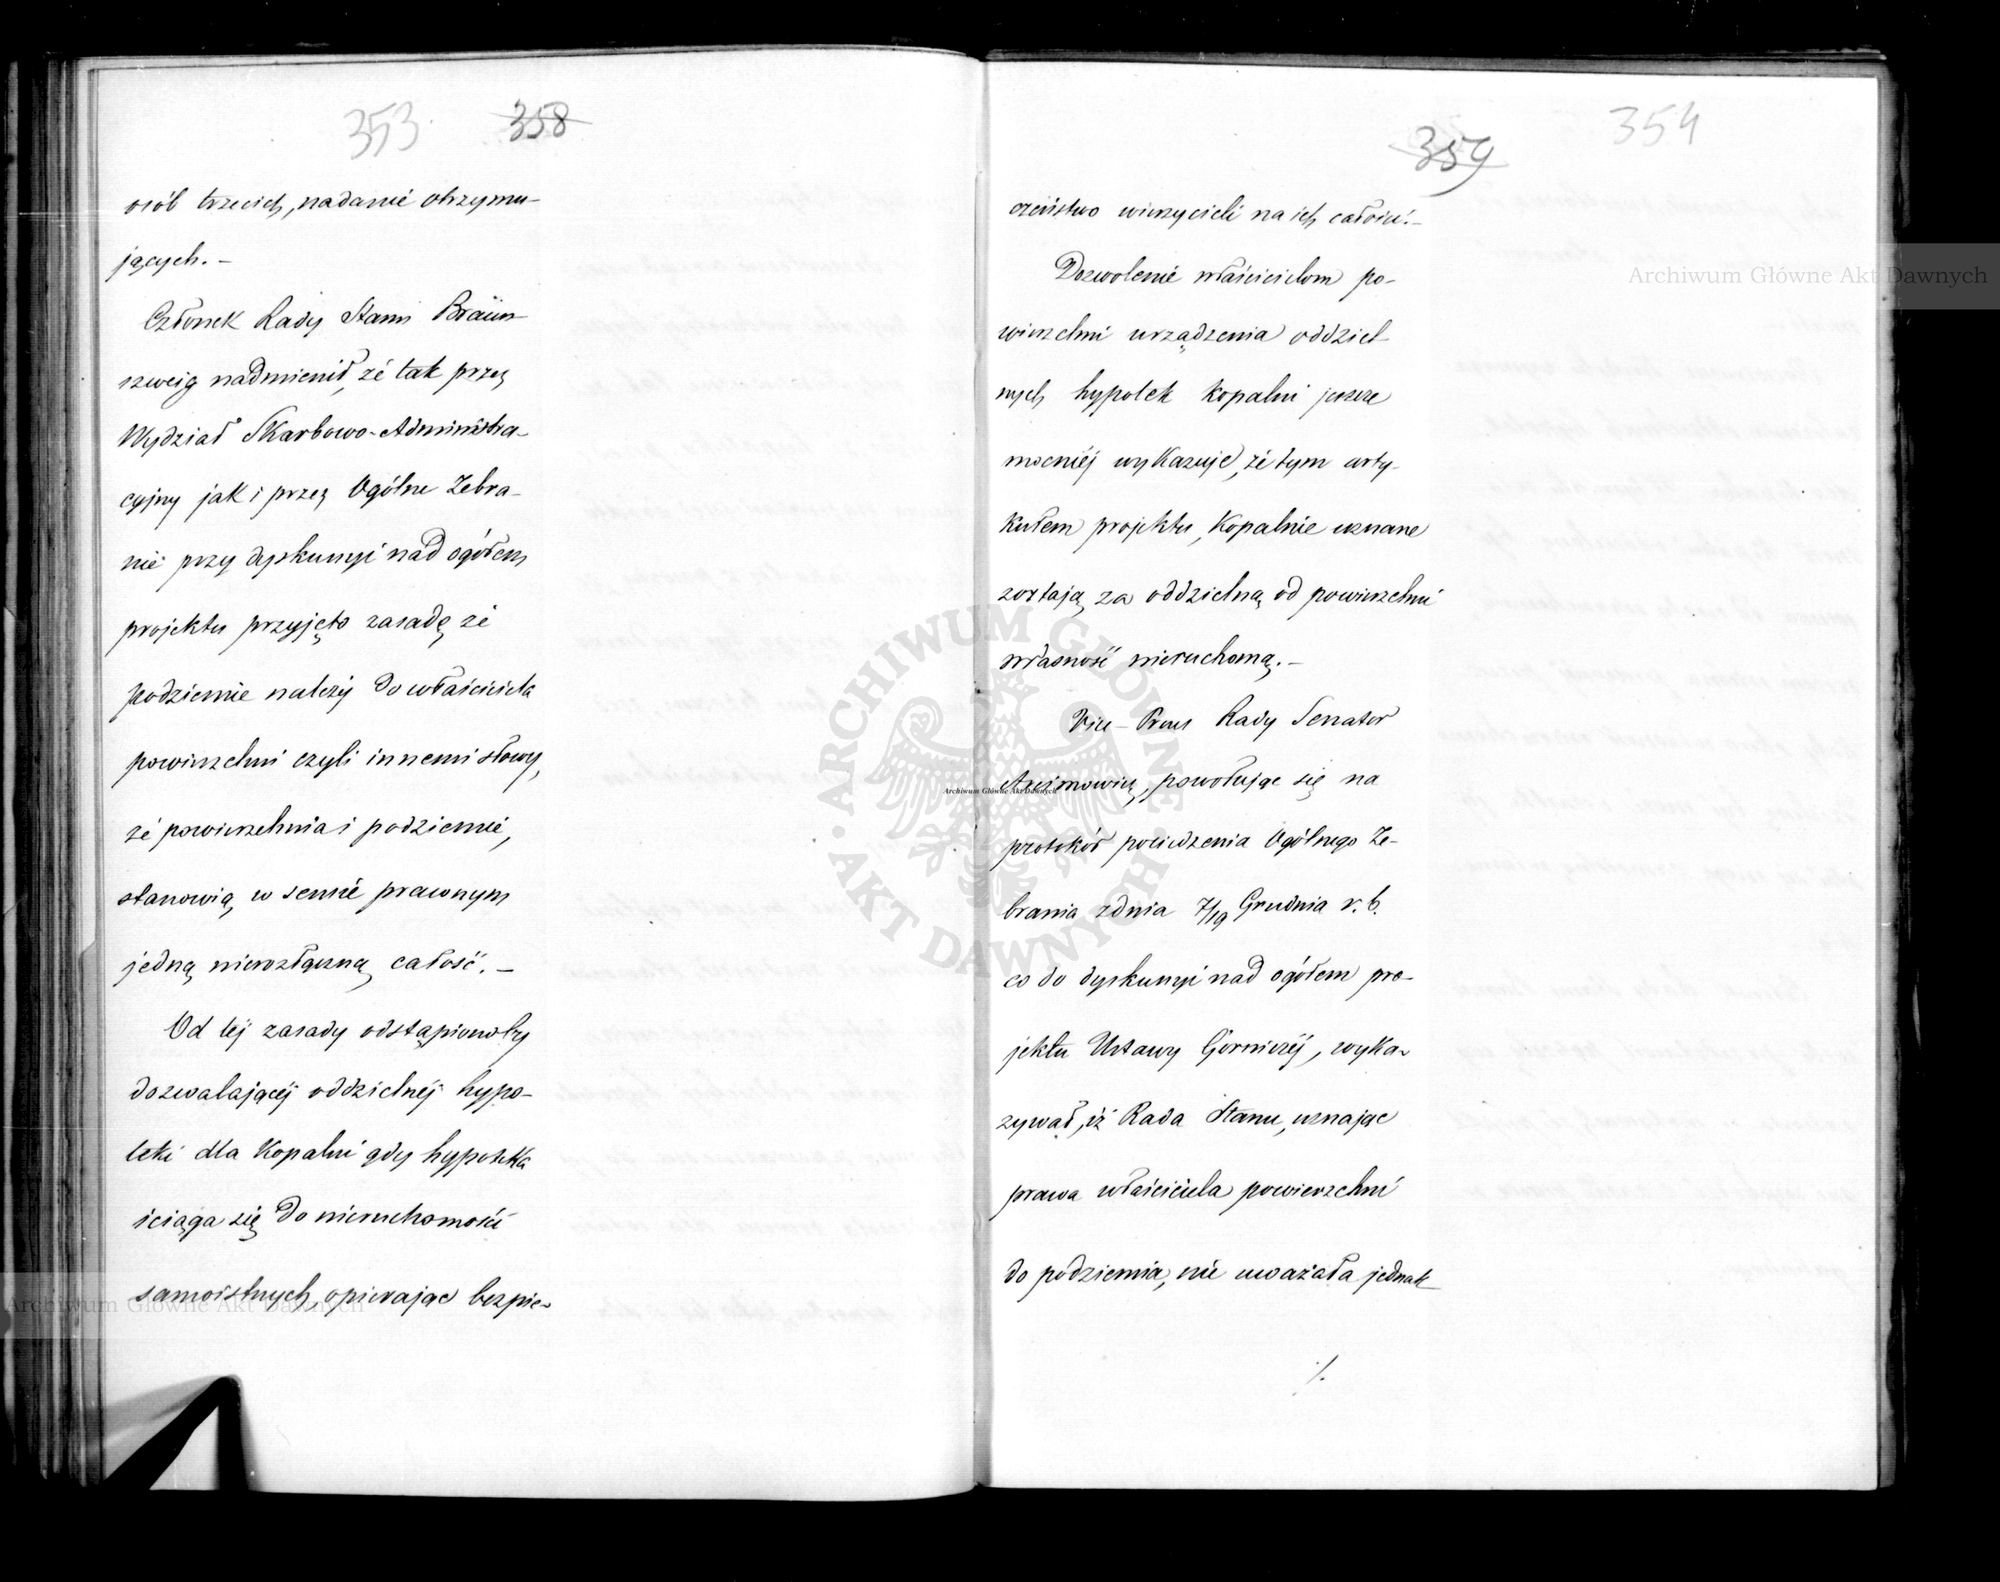 353 358
osób trzecich, nadanie otrzymu-
jących. -
Członek Rady Stanu Braün
szweig nadmienił, że tak przez
Wydział Skarbowo-Administra-
cyjny jak i przez Ogólne Zebra-
nie przy dyskussyi nad ogółem
projektu przyjęto zasadę że
podziemie należy do właściciela
powierzchni czyli innemi słowy,
że powierzchnia i podziemie,
stanowią, w sensie prawnym
jedną nierozłączną całość. -
Od téj zasady odstąpionoby
dozwalającéj oddzielnéj hypo-
teki dla kopalni gdy hypoteka
ściąga się do nieruchomości
samoistnych, opierając bezpie-
359 354
czeństwo wierzycieli na ich całości. -
Dozwolenie właścicielom po-
wierzchni urządzenia oddziel-
nych hypotek kopalni jeszcze
mocniéj wykazuje, że tym arty-
kułem projektu, kopalnie uznane
zostają za oddzielną od powierzchni
własność nieruchomą. -
Vice-Prezes Rady Senator
powołując się na
protokół posiedzenia Ogólnego Ze-
brania z dnia 7/19 Grudnia r. b.
co do dyskussyi nad ogółem pro-
jektu Ustawy Górniczéj, wyka-
zywał, iż Rada Stanu, uznając
prawa właściciela powierzchni
do podziemia, nie uważała jednak
./.
Archiwum Główne Akt Dawnych
Archiwum Główne Akt Dawnych
Archiwum Główne Akt Dawnych
ARCHIWUM GŁÓWNE AKT DAWNYCH